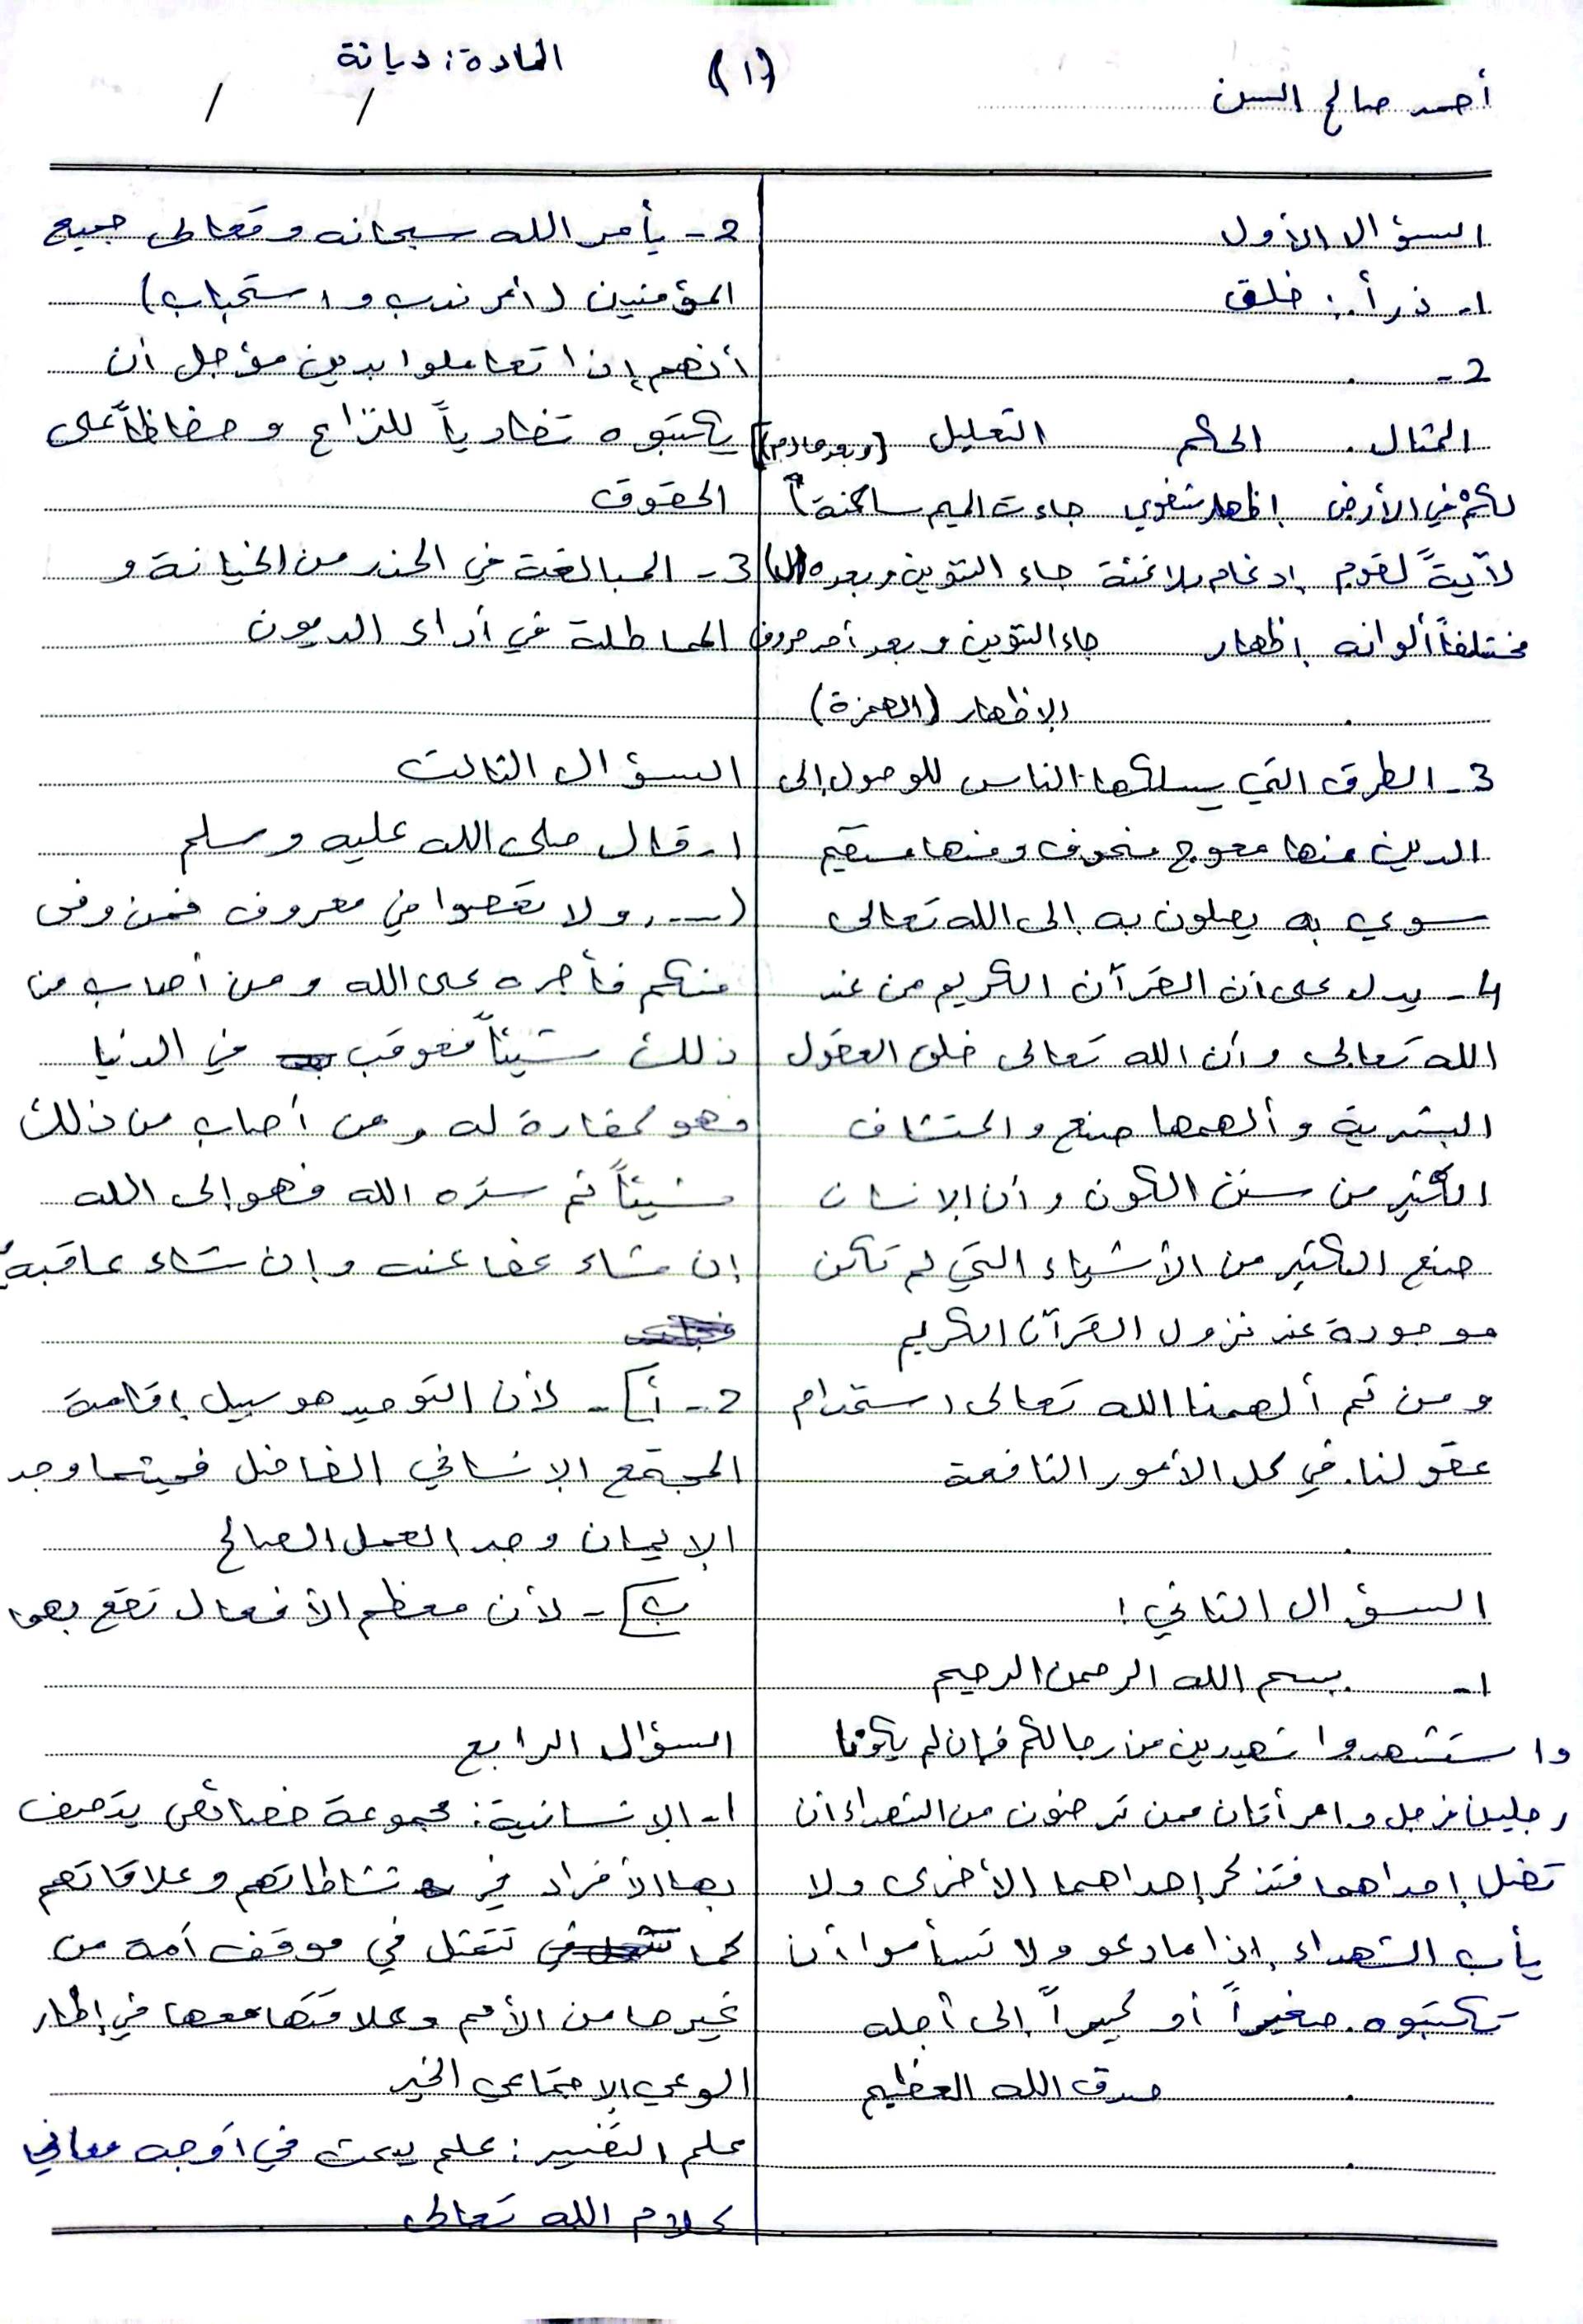 المادة: ديانة
(١)
أحمد صالح السن
/ /
السؤال الأول
1- ذرأ: خلق
2-
المثال الحكم التعليل
لكم في الأرض إظهار شفوي جاءت الميم ساكنة (وبعدها دم)
لآيةً لقوم إدغام بلا غنة جاء التنوين وبعده (ل)
مختلفاً ألوانه إظهار جاء التنوين وبعد أحد حروف
الإظهار (الهمزة)
3- الطرق التي يسلكها الناس للوصول إلى
الدين منها معوج منحرف ومنها مستقيم
سوي به يصلون به إلى الله تعالى
4- يدل على أن القرآن الكريم من عند
الله تعالى وأن الله تعالى خلق العقول
البشرية وألهمها صنع واكتشاف
الكثير من سنن الكون وأن الإنسان
صنع الكثير من الأشياء التي لم تكن
موجودة عند نزول القرآن الكريم
ومن ثم ألهمنا الله تعالى استخدام
عقولنا في كل الأمور النافعة
السؤال الثاني:
1- بسم الله الرحمن الرحيم
واستشهدوا شهيدين من رجالكم فإن لم يكونا
رجلين فرجل وامرأتان ممن ترضون من الشهداء أن
تضل إحداهما فتذكر إحداهما الأخرى ولا
يأب الشهداء إذا ما دعو ولا تسأموا أن
تكتبوه صغيراً أو كبيراً إلى أجله
صدق الله العظيم
2- يأمر الله سبحانه وتعالى جميع
المؤمنين (أمر ندب واستحباب)
أنهم إذا تعاملوا بدين مؤجل أن
يكتبوه تفادياً للنزاع وحفاظاً على
الحقوق
3- المبالغة في الحذر من الخيانة و
المماطلة في أداء الديون
السؤال الثالث
1- قال صلى الله عليه وسلم
(--- ولا تعصوا في معروف فمن وفى
منكم فأجره على الله ومن أصاب من
ذلك شيئاً فعوقب في الدنيا
فهو كفارة له ومن أصاب من ذلك
شيئاً ثم ستره الله فهو إلى الله
إن شاء عفا عنه وإن شاء عاقبه
2- أ]- لأن التوحيد هو سبيل إقامة
المجتمع الإنساني الفاضل فحيثما وجد
الإيمان وجد العمل الصالح
ب]- لأن معظم الأفعال تقع بهما
السؤال الرابع
1- الإنسانية: مجموعة خصائص يتصف
بها الأفراد في نشاطاتهم وعلاقاتهم
كما تتمثل في موقف أمة من
غيرها من الأمم وعلاقتها معها في إطار
الوعي الاجتماعي الخير
علم التفسير: علم يبحث في أوجه معاني
كلام الله تعالى